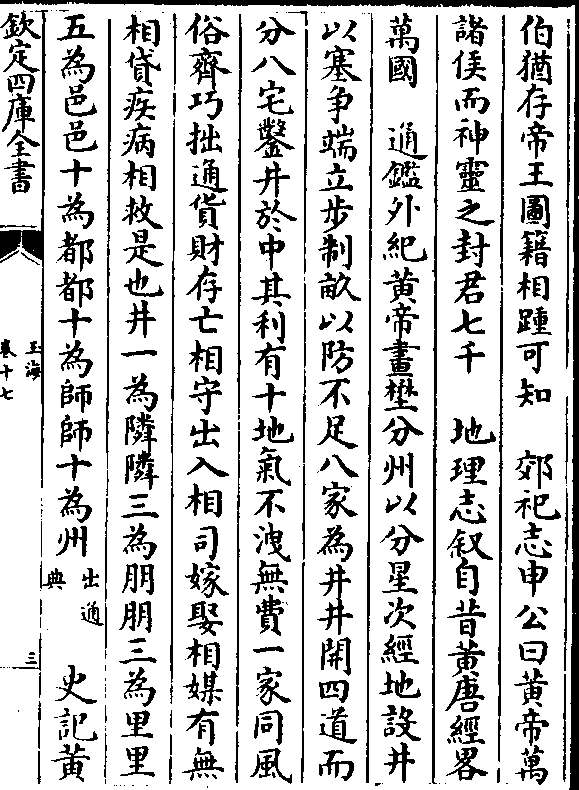 伯猶存帝王圖籍相踵可知　郊祀志申公曰黃帝萬
諸侯而神靈之封君七千　地理志叙自昔黃唐經畧
萬國　通鑑外紀黃帝畫壄分州以分星次經地設井
以塞爭端立步制畝以防不足八家為井井開四道而
分八宅鑿井於中其利有十地氣不洩無費一家同風
俗齊巧拙通貨財存亡相守出入相司嫁娶相媒有無
相貸疾病相救是也井一為隣隣三為朋朋三為里里
五為邑邑十為都都十為師師十為州出通典　史記黃
欽定四庫全書
玉海
卷十七
三